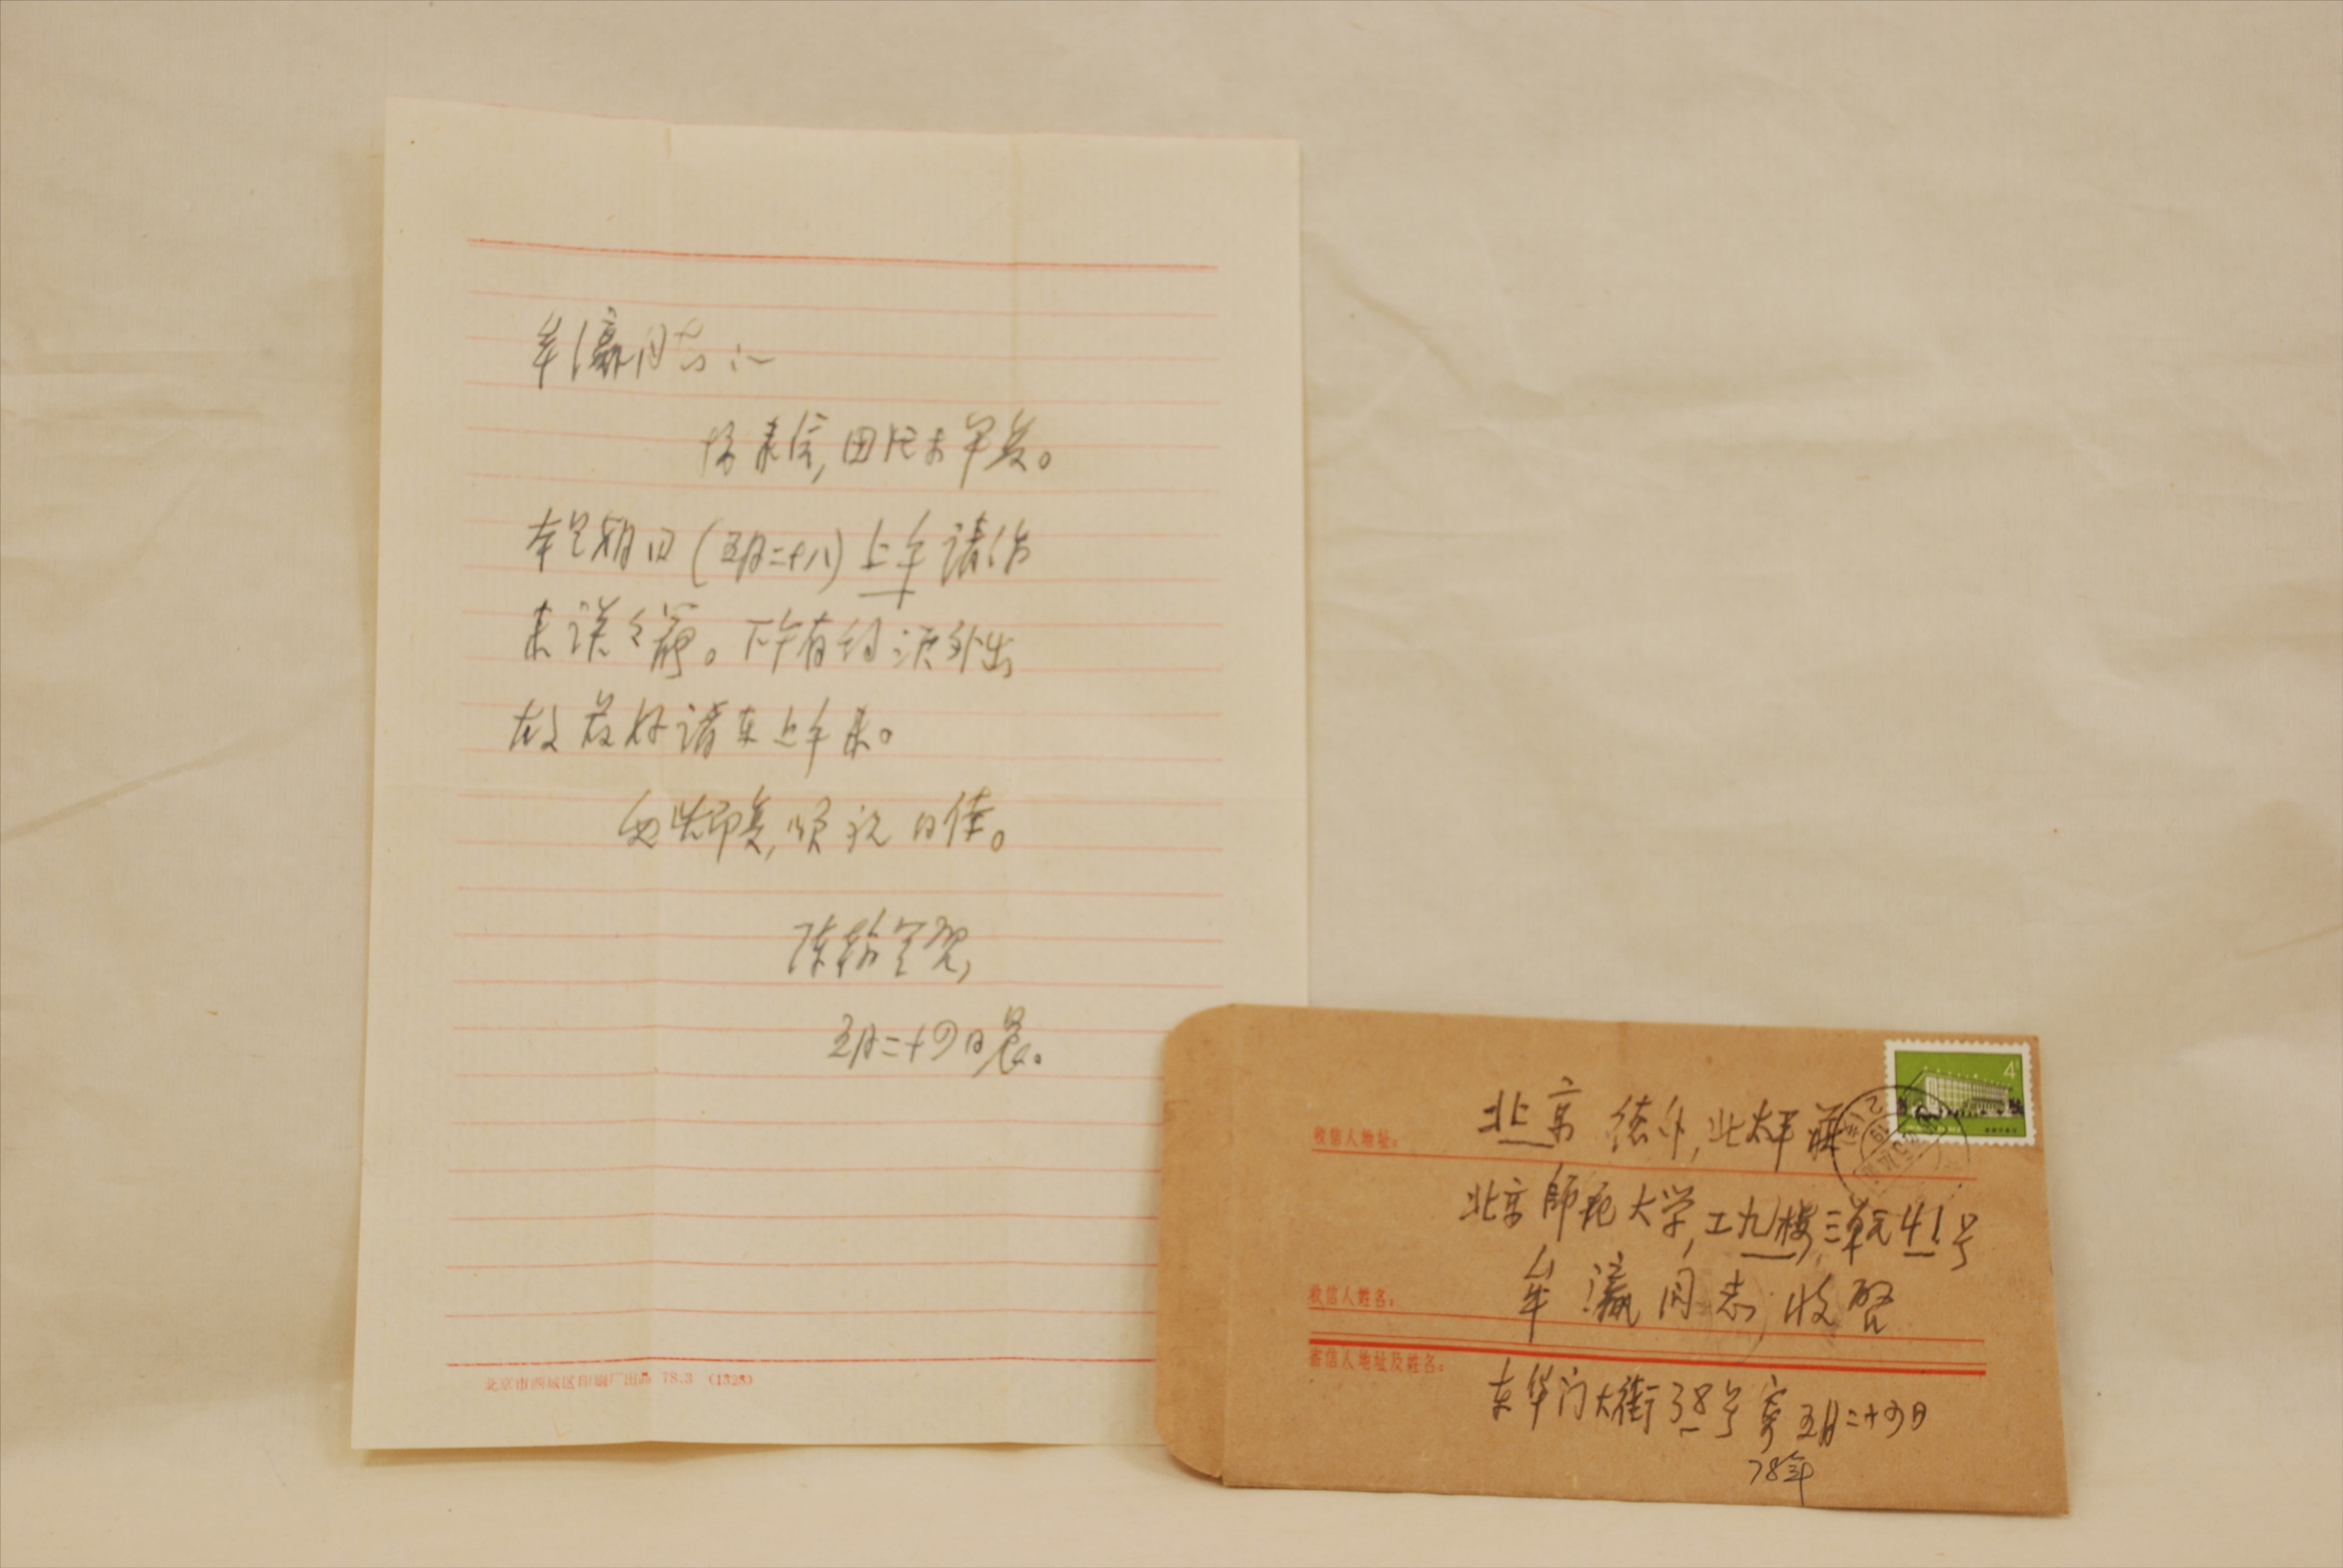 牟瀛同志：
接来信，
本星期日（五月二十八）上午请你
来谈。下午有约须外出
故最好请在上午来。
匆此布复，顺祝日佳。
陈翰笙
五月二十四日晨。
北京市西城区印刷厂出品 78.3 (1328)
4
收信人地址：
北京德外，北太平庄
北京师范大学，工九楼，三单元41号
收信人姓名：
牟瀛同志收启
寄信人地址及姓名：
东华门大街38号寄五月二十四日
78年